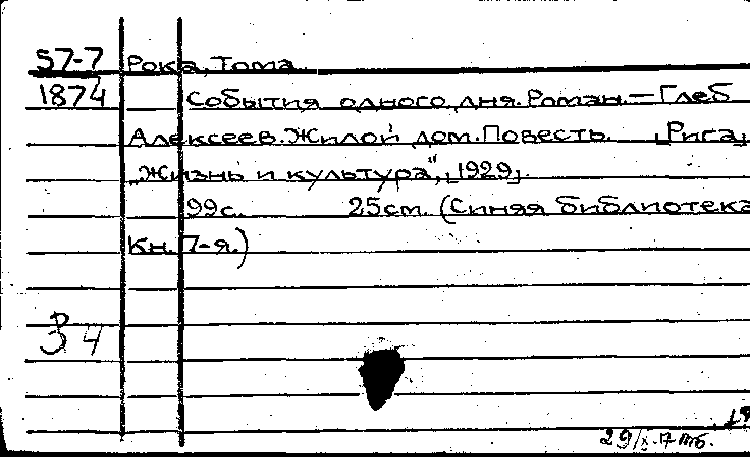 57-7 Рока, Тома.
1874 События одного дня. Роман. — Глеб
Алексеев. Жилой дом. Повесть. [Рига]
„Жизнь и культура", [1929].
99с. 25см. (Синяя библиотека
Кн. 7-я.)
34